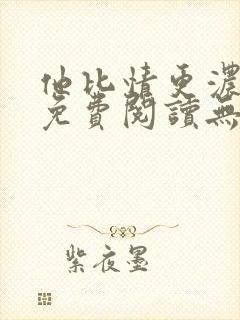 他比情更濃
免費閱讀無
紫夜墨